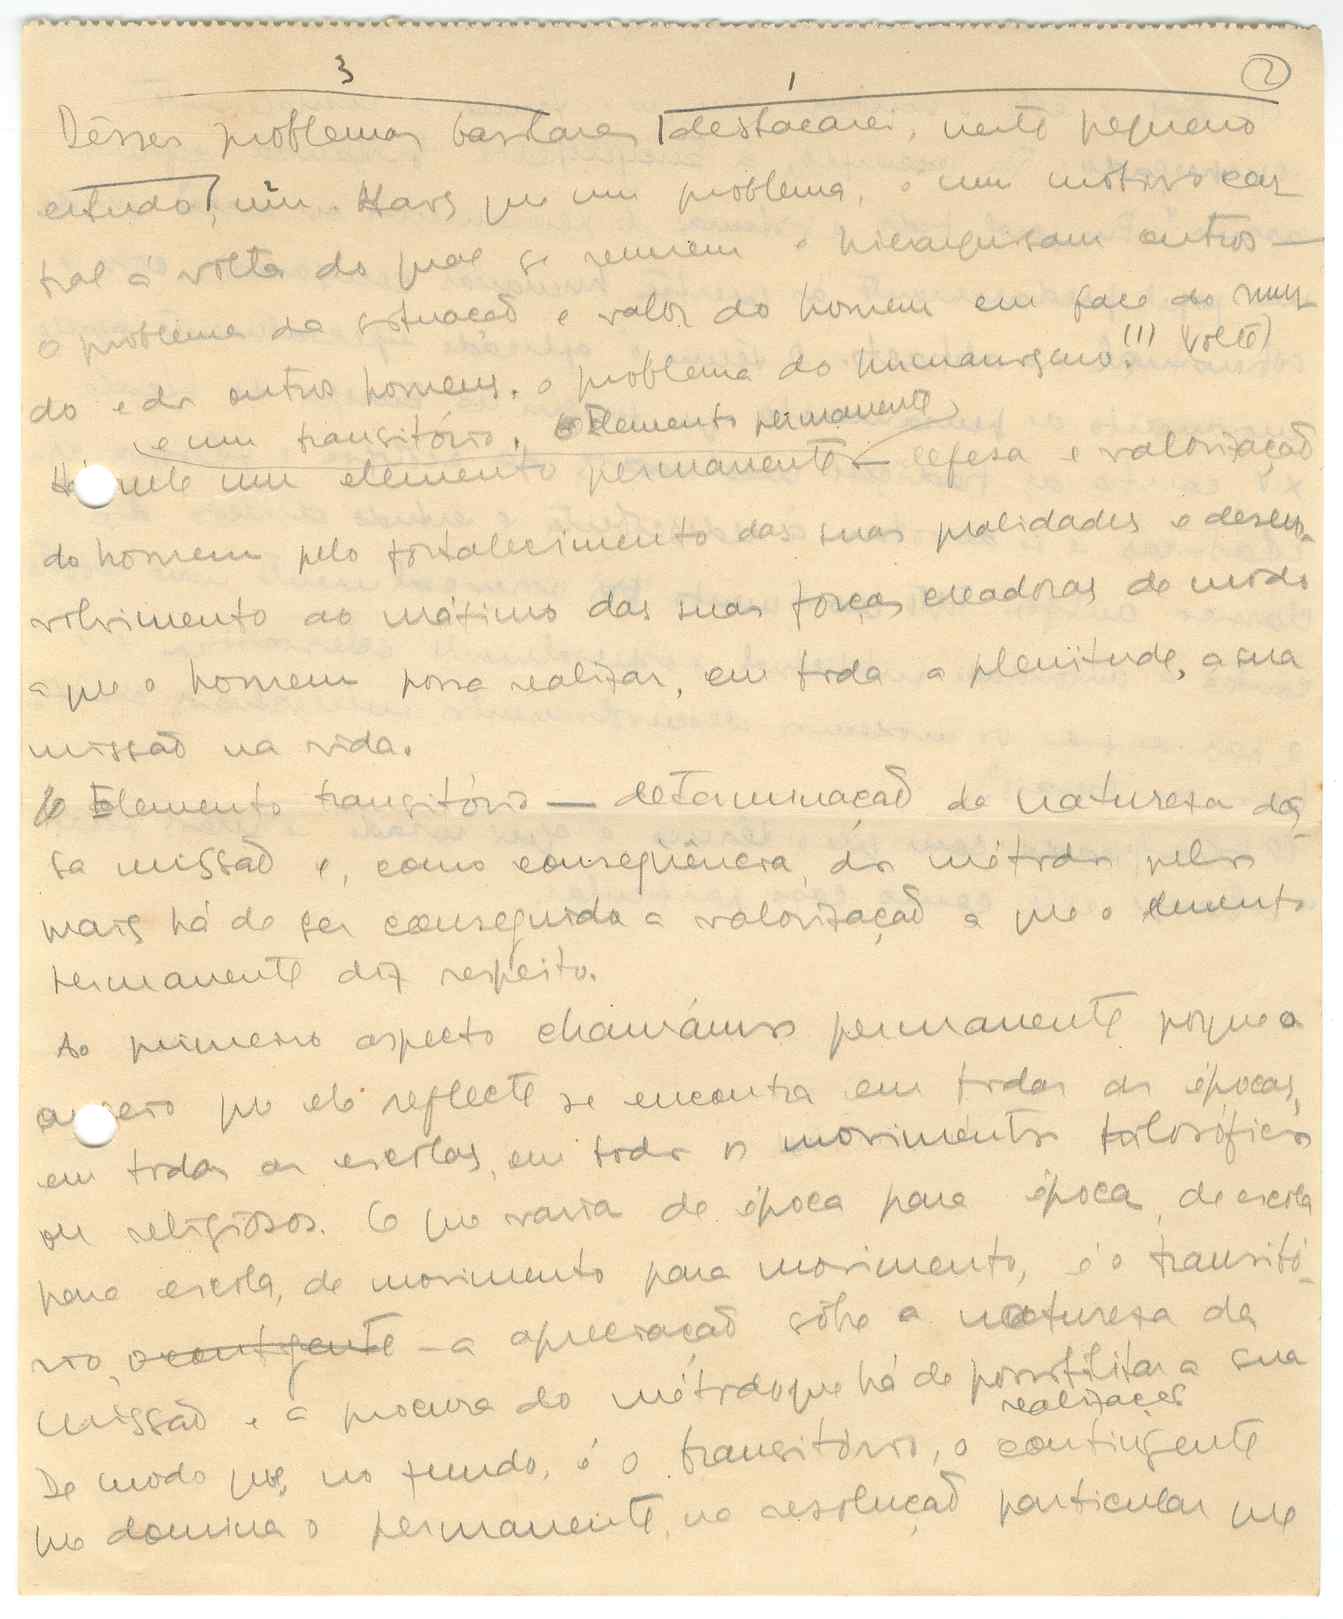 3 1 2
Dêsses problemas basilares destacarei, neste pequeno
estudo, um. Mais que um problema, é um motivo cen-
tral à volta do qual se reunem e hierarquisam outros —
o problema da situação e valor do homem em face do mun-
do e dos outros homens. o problema do humanismo. (1) (volta)
e um transitório. Elemento permanente
Há nele um elemento permanente — defesa e valorização
do homem pelo fortalecimento das suas qualidades e desen-
volvimento ao máximo das suas forças creadoras de modo
a que o homem possa realizar, em toda a plenitude, a sua
missão na vida.
O Elemento transitório — determinação da natureza des-
sa missão e, como conseqüência, dos métodos pelos
quais há de ser conseguida a valorização a que o elemento
permanente diz respeito.
Ao primeiro aspecto chamámos permanente porque o
anseio que ele reflecte se encontra em todas as épocas,
em todas as escolas, em todos os movimentos filosóficos
ou religiosos. O que varia de época para época, de escola
para escola, de movimento para movimento, é o transitó-
rio, o contigente — a apreciação sôbre a natureza da
missão e a procura do método que há de possibilitar a sua
realização
De modo que, no fundo, é o transitório, o contingente
que domina o permanente, na resolução particular que